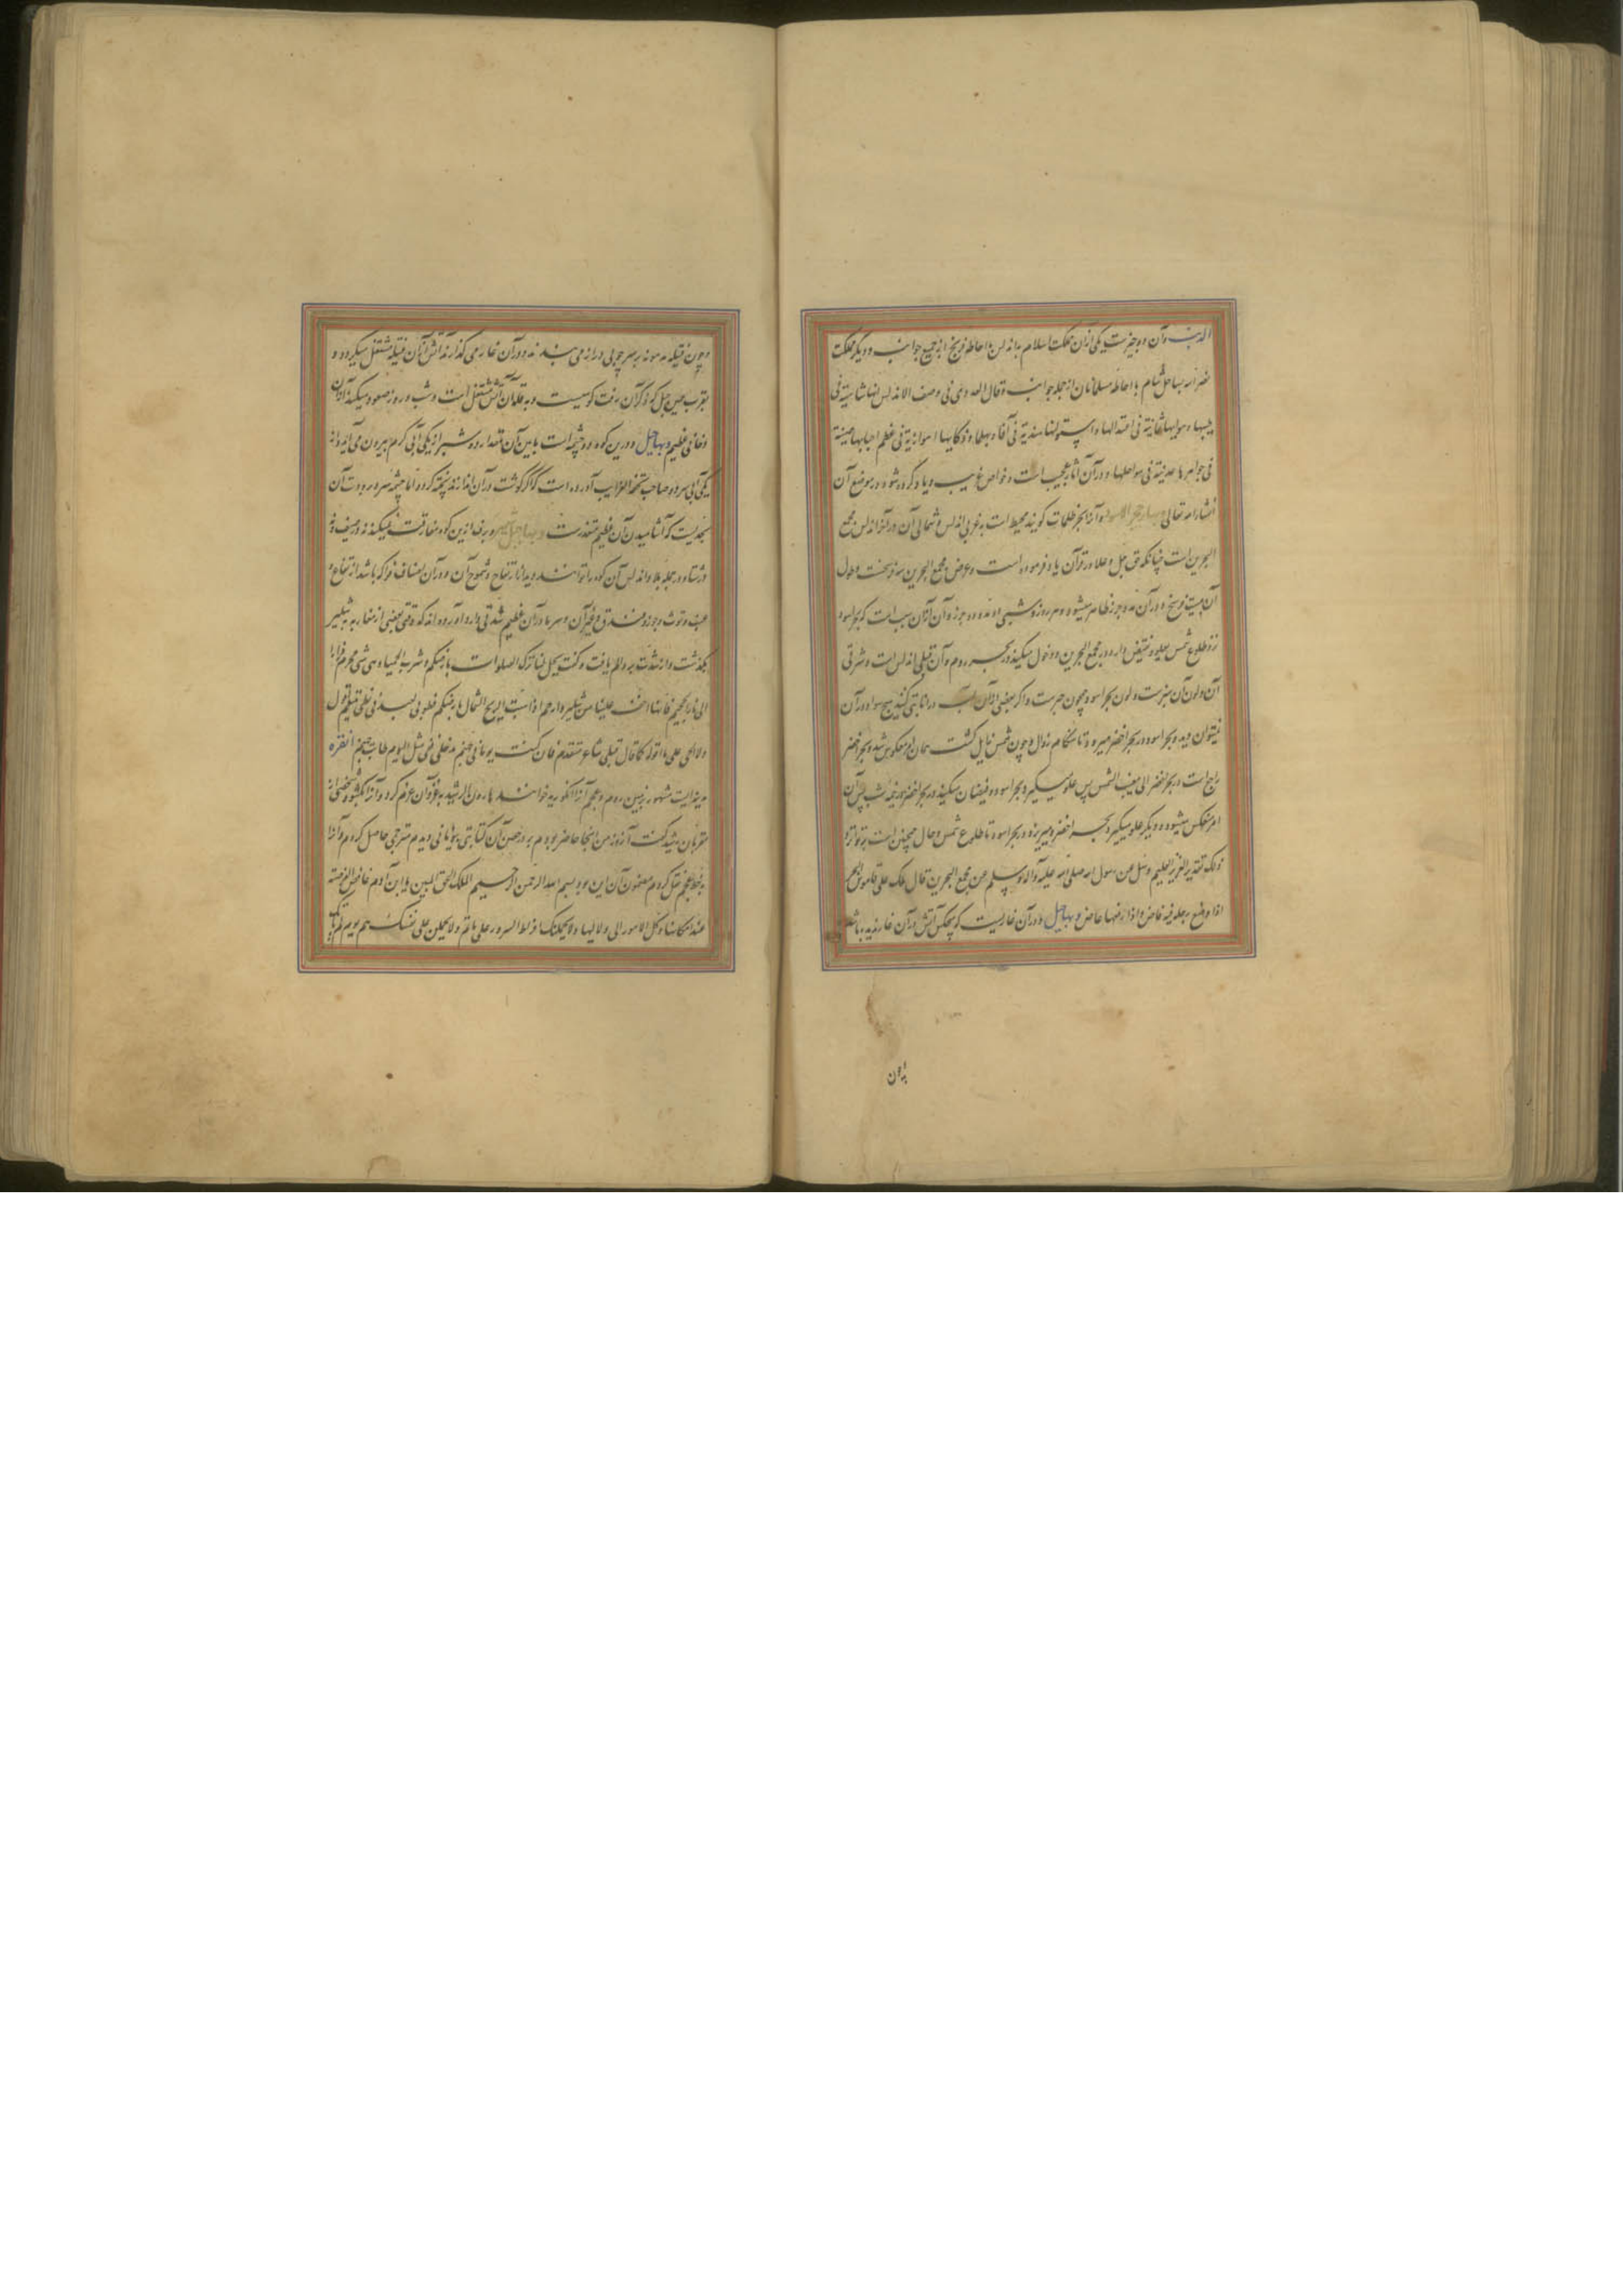 الدنیا و آن دو چیزست یکی ازان مملکت اسلام باندلس با احاطه فرنج از جمیع جوانب و دیگر مملکت
بساحل شام با احاطه مسلمانان از جمله جوانب و قال العدوی فی وصف الاندلس انها شامیة فی
طیبها و هوائها یمانیة فی اعتدالها و استوائها هندیة فی عظم جبایتها صینیة
فی جواهرها عدنیة فی سواحلها و در آن آثار عجیب است و خواص غریب و یاد کرده شود در موضع آن
انشاء الله تعالی و آنرا بحر ظلمات گویند محیط است به غربی اندلس و شمالی آن و در آخر اندلس مجمع
البحرین است چنانکه حق جل و علا در قرآن یاد فرموده است و عرض مجمع البحرین سه فرسخست و طول
آن بیست فرسخ و در آن مد و جزر ظاهر میشود و هر روز و شبی دو مد و دو جزر و آن ازان سبب است که بحر اسود
نزد طلوع شمس و در مجمع البحرین دخول میکند در بحر روم و آن قبلی اندلس است و شرقی
آن و لون آن سبزست و لون بحر اسود همچون حبرست و اگر بعضی ازان آب در اناء کنند هیچ سواد در آن
نتوان دید و بحر اسود در بحر اخضر میرود تا هنگام زوال و چون شمس زایل گشت همان امر معکوس شد و بحر اخضر
راجع است در بحر اخضر الی مغیب الشمس پس علو میگیرد بحر اسود و فیضان میکند در بحر اخضر تا نیمه شب پس آن
امر منعکس میشود و دیگر علو میگیرد بحر اخضر و میریزد در بحر اسود تا طلوع شمس و حال همچنین است بتواتر
ذلک تقدیر العزیز العلیم و سئل عن رسول الله صلی الله علیه و آله و سلم عن مجمع البحرین قال ملک علی قاموس البحر
اذا وضع رجله فیه فاض و اذا رفعها غاض و بها جبل و در آن غاریست که هیچکس آتش در آن غار ندیده باشد
و چون
و چون فتیله مدهونه بر سر چوبی دراز می بندند و در آن غار می گذارند آتش ازان فتیله مشتعل میگردد و
بقرب همین جبل که ذکر آن رفت کوهیست و به قله آن آتش مشتعل است و شب و روز صعود میکند ازان
دخانی عظیم و بها جبل و درین کوه دو چشمه است ما بین آن مقدار دو شبر از یکی آبی گرم بیرون می آید و از
یکی آبی سرد و صاحب تحفة الغرایب آورده است که اگر گوشت در آن اندازند پخته گردد اما چشمه سرد برودت آن
بحدیست که آشامیدن آن عظیم متعذرست و بها جبل و برف ازین کوه مفارقت نمیکند نه در صیف و نه
در شتاء و در جمله بلاد اندلس آن کوه را توانند دید از ارتفاع و شموخ آن و در آن اصناف فواکه باشد از تفاح و
عنب و توت و جوز و فندق و غیر آن و سرما در آن عظیم شدتی دارد آورده اند که وقتی بعضی از مغاربه به شلیر
بگذشت و از شدت برد الم یافت و گفت یحل لنا ترک الصلوات بارضکم و شرب الحمیا و هی شئ محرم فرارا
الی نار الجحیم فانها اخف علینا من شلیر و ارحم اذا هبت الریح الشمال بارضکم فطوبی لعبد فی لظی یتنعم اقول
ولا انحی علی ما اقوله کما قال قبلی شاعر متقدم فان کنت یوما فی جهنم مدخلی ففی مثل هذا الیوم طابت جهنم انقره
مدینه ایست مشهور بزمین روم و عجم آنرا انکوریه خوانند هارون الرشید به غزو آن عزم کرد و آنرا بگشود شخصی از
مقربان رشید گفت آنروز من اینجا حاضر بودم بر در حصن آن کتابتی یونانی دیدم مترجمی حاصل کردم و آنرا
به خط عجم نقل کردم مضمون آن این بود بسم الله الرحمن الرحیم الملک الحق المبین یا ابن آدم غافص الفرصة
عند امکانها و کل الامور الی ولیها ولا یحملنک افراط السرور علی مأثم ولا تحملن علی نفسک هم یوم لم یأت